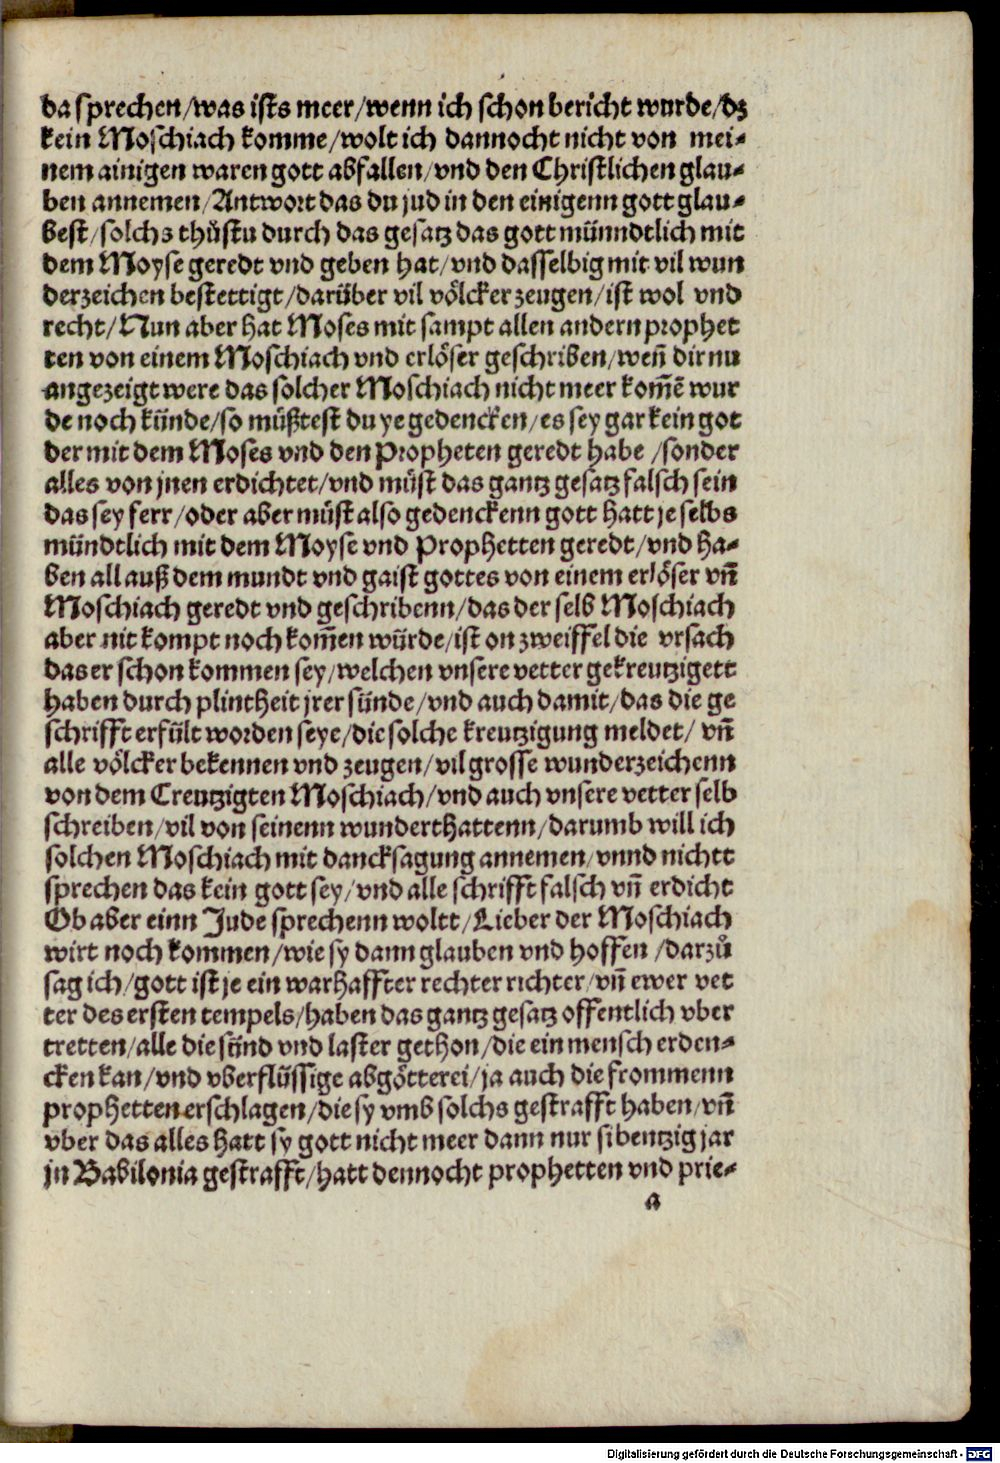 da sprechen/was ists meer/wenn ich schon bericht wurde/dz
kein Moschiach komme/wolt ich dannocht nicht von mei-
nem ainigen waren gott abfallen/vnd den Christlichen glau-
ben annemen/Antwort das du jud in den einigenn gott glau-
best/solchs thůstu durch das gesatz das gott münndtlich mit
dem Moyse geredt vnd geben hat/vnd dasselbig mit vil wun
derzeichen bestettigt/darüber vil völcker zeugen/ist wol vnd
recht/Nun aber hat Moses mit sampt allen andern prophet
ten von einem Moschiach vnd erlöser geschriben/wen̄ dir nu
angezeigt were das solcher Moschiach nicht meer kom̄ē wur
de noch künde/so müßtest du ye gedencken/es sey gar kein got
der mit dem Moses vnd den Propheten geredt habe /sonder
alles von jnen erdichtet/vnd můst das gantz gesatz falsch sein
das sey ferr/oder aber můst also gedenckenn gott hatt je selbs
mündtlich mit dem Moyse vnd Prophetten geredt/vnd ha-
ben all auß dem mundt vnd gaist gottes von einem erlöser vn̄
Moschiach geredt vnd geschribenn/das der selb Moschiach
aber nit kompt noch kom̄en würde/ist on zweiffel die vrsach
das er schon kommen sey/welchen vnsere vetter gekreutzigett
haben durch plintheit jrer sünde/vnd auch damit/das die ge
schrifft erfült worden seye/die solche kreutzigung meldet/ vn̄
alle völcker bekennen vnd zeugen/vil grosse wunderzeichenn
von dem Creutzigten Moschiach/vnd auch vnsere vetter selb
schreiben/vil von seinenn wunderthattenn/darumb will ich
solchen Moschiach mit dancksagung annemen/vnnd nichtt
sprechen das kein gott sey/vnd alle schrifft falsch vn̄ erdicht
Ob aber einn Jude sprechenn woltt/Lieber der Moschiach
wirt noch kommen/wie sy dann glauben vnd hoffen /darzů
sag ich/gott ist je ein warhaffter rechter richter/vn̄ ewer vet
ter des ersten tempels/haben das gantz gesatz offentlich vber
tretten/alle die sünd vnd laster gethon/die ein mensch erden-
cken kan/vnd vberflüssige abgötterei/ja auch die frommenn
prophetten erschlagen/die sy vmb solchs gestrafft haben/vn̄
vber das alles hatt sy gott nicht meer dann nur sibentzig jar
jn Babilonia gestrafft/hatt dennocht prophetten vnd prie-
a
Digitalisierung gefördert durch die Deutsche Forschungsgemeinschaft - DFG